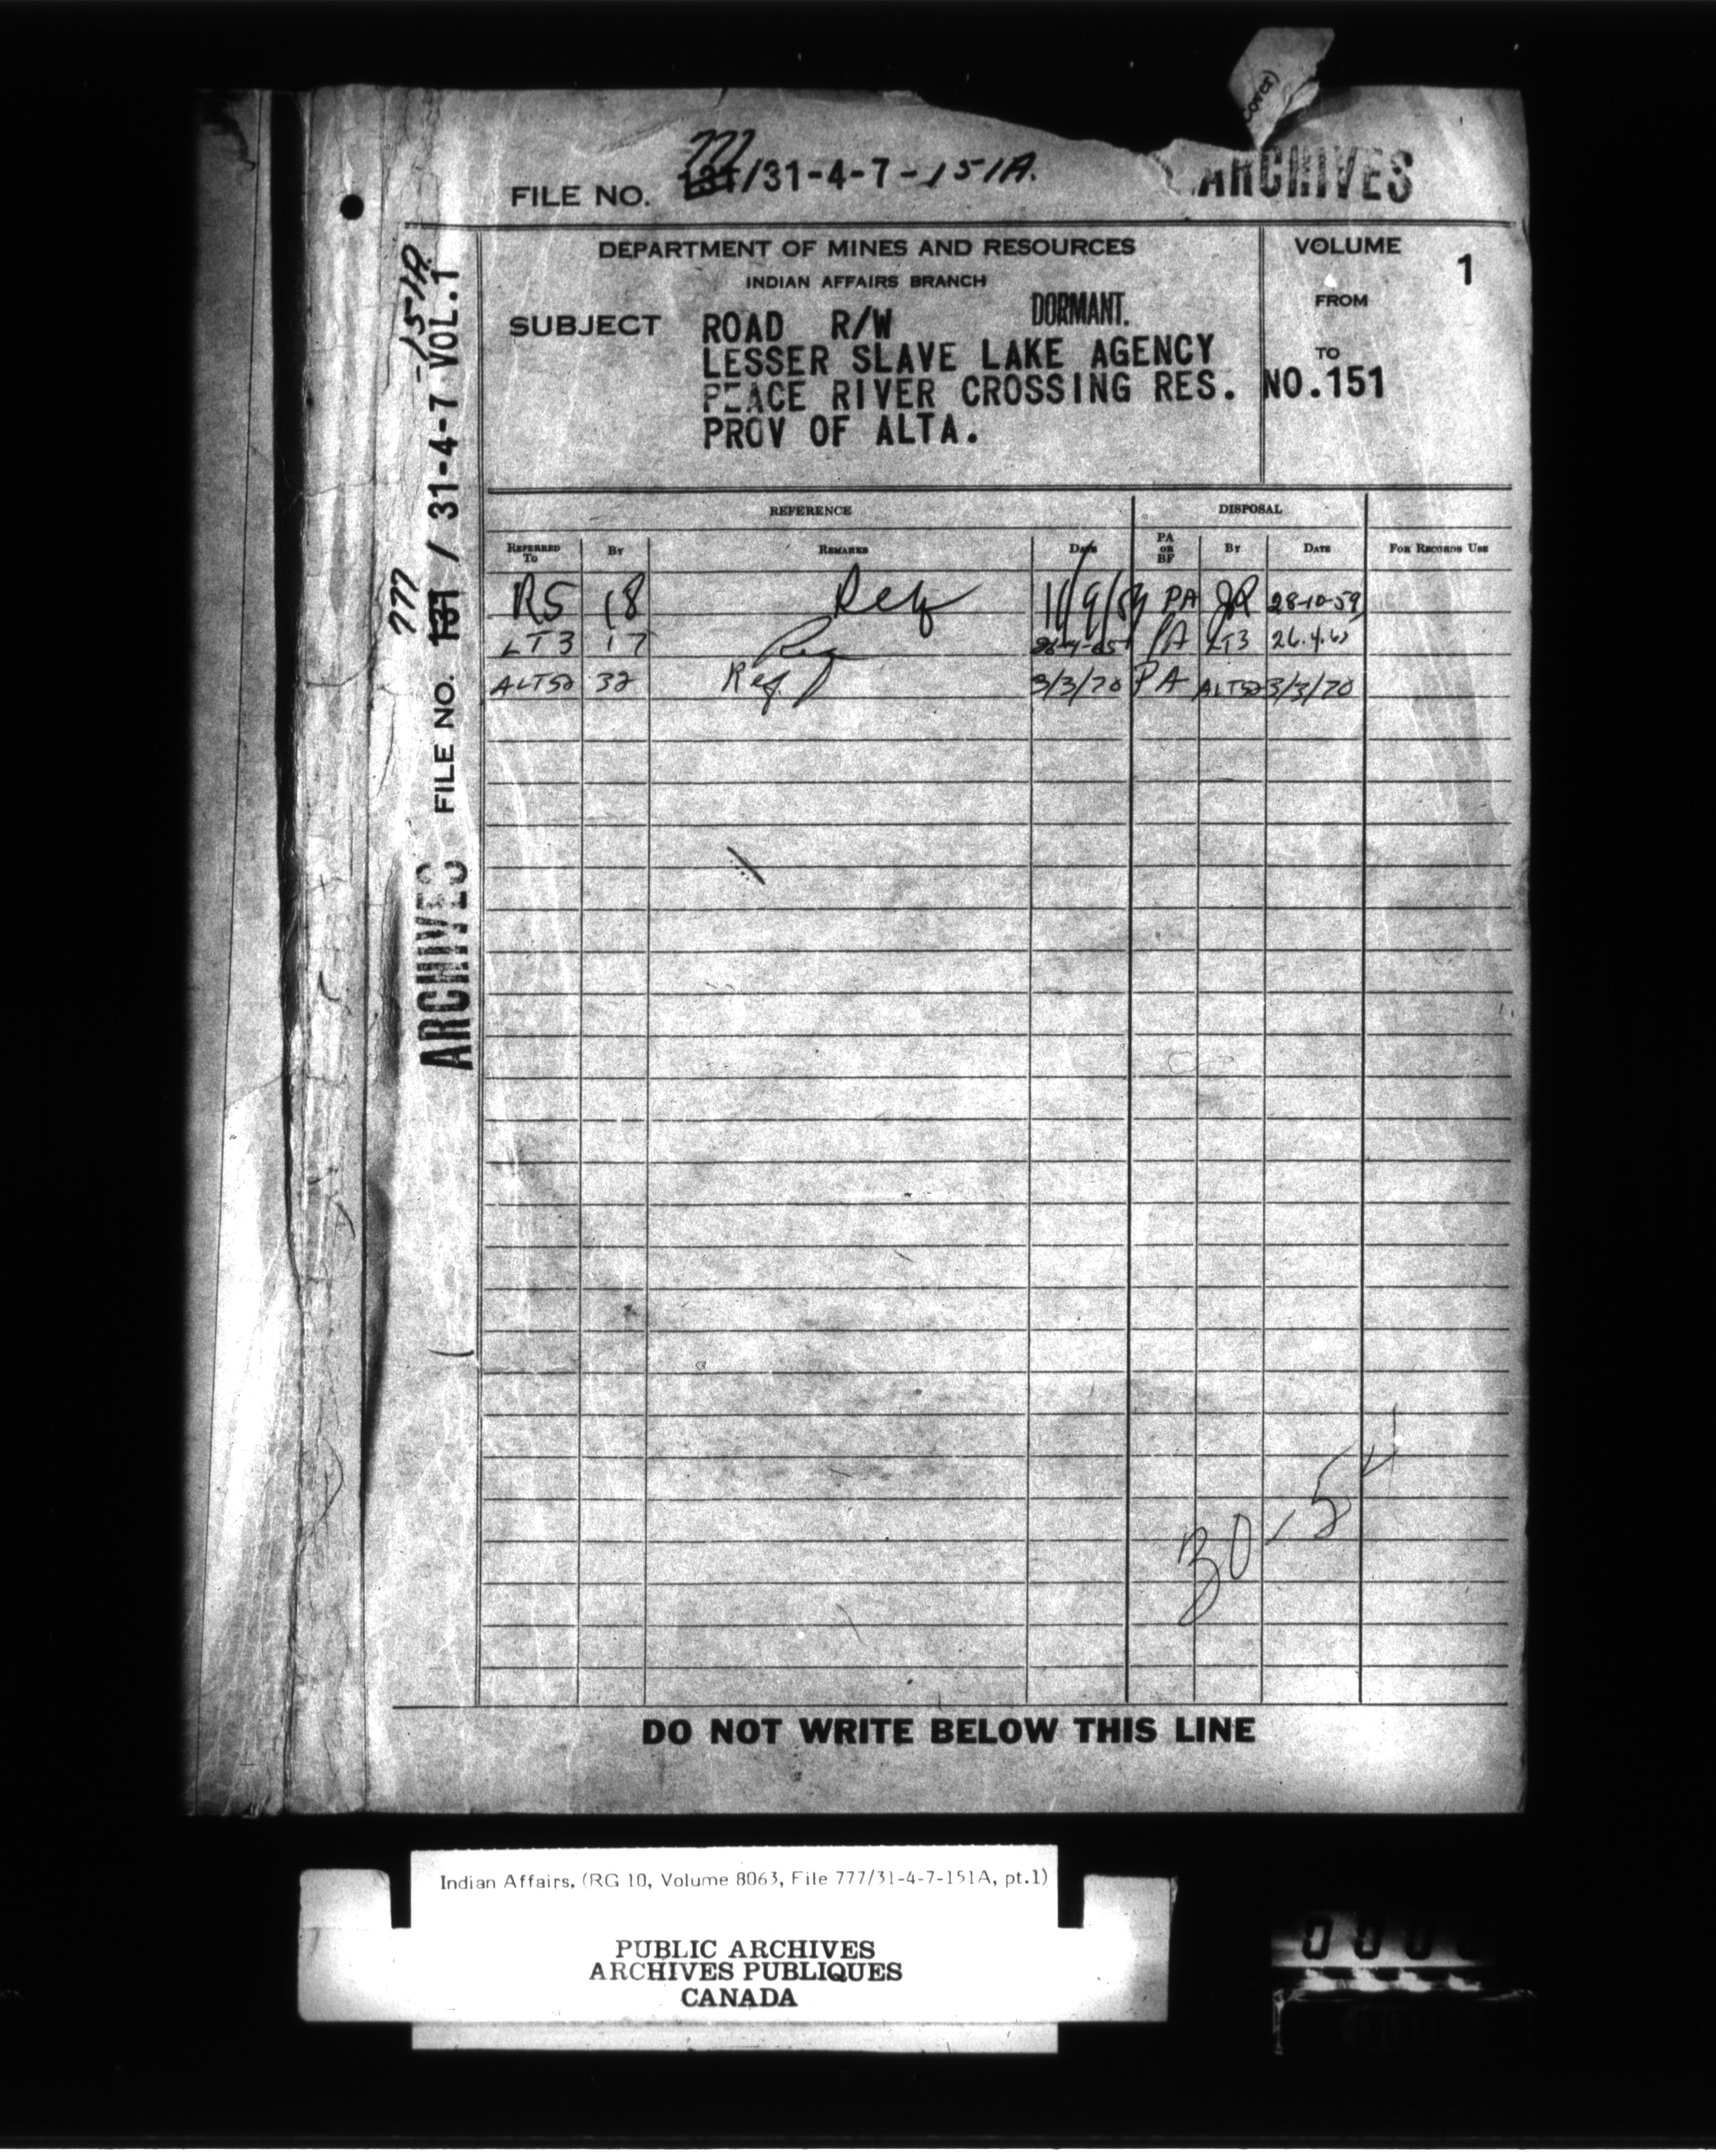 (cover)
777
FILE NO. 131/31-4-7-151A.
ARCHIVES
DEPARTMENT OF MINES AND RESOURCES
INDIAN AFFAIRS BRANCH
VOLUME 1
FROM
TO
DORMANT.
SUBJECT ROAD R/W
LESSER SLAVE LAKE AGENCY
PEACE RIVER CROSSING RES. NO.151
PROV OF ALTA.
777 -151A.
FILE NO. 131 / 31-4-7 VOL.1
ARCHIVES
REFERENCE DISPOSAL
REFERRED TO BY REMARKS DATE PA OR BF BY DATE FOR RECORDS USE
RS 18 Req 11/9/59 PA JR 28-10-59
LT3 17 Req PA LT3
32 Req 3/3/70 PA 3/3/70
30-5
DO NOT WRITE BELOW THIS LINE
Indian Affairs, (RG 10, Volume 8063, File 777/31-4-7-151A, pt.1)
PUBLIC ARCHIVES
ARCHIVES PUBLIQUES
CANADA
000